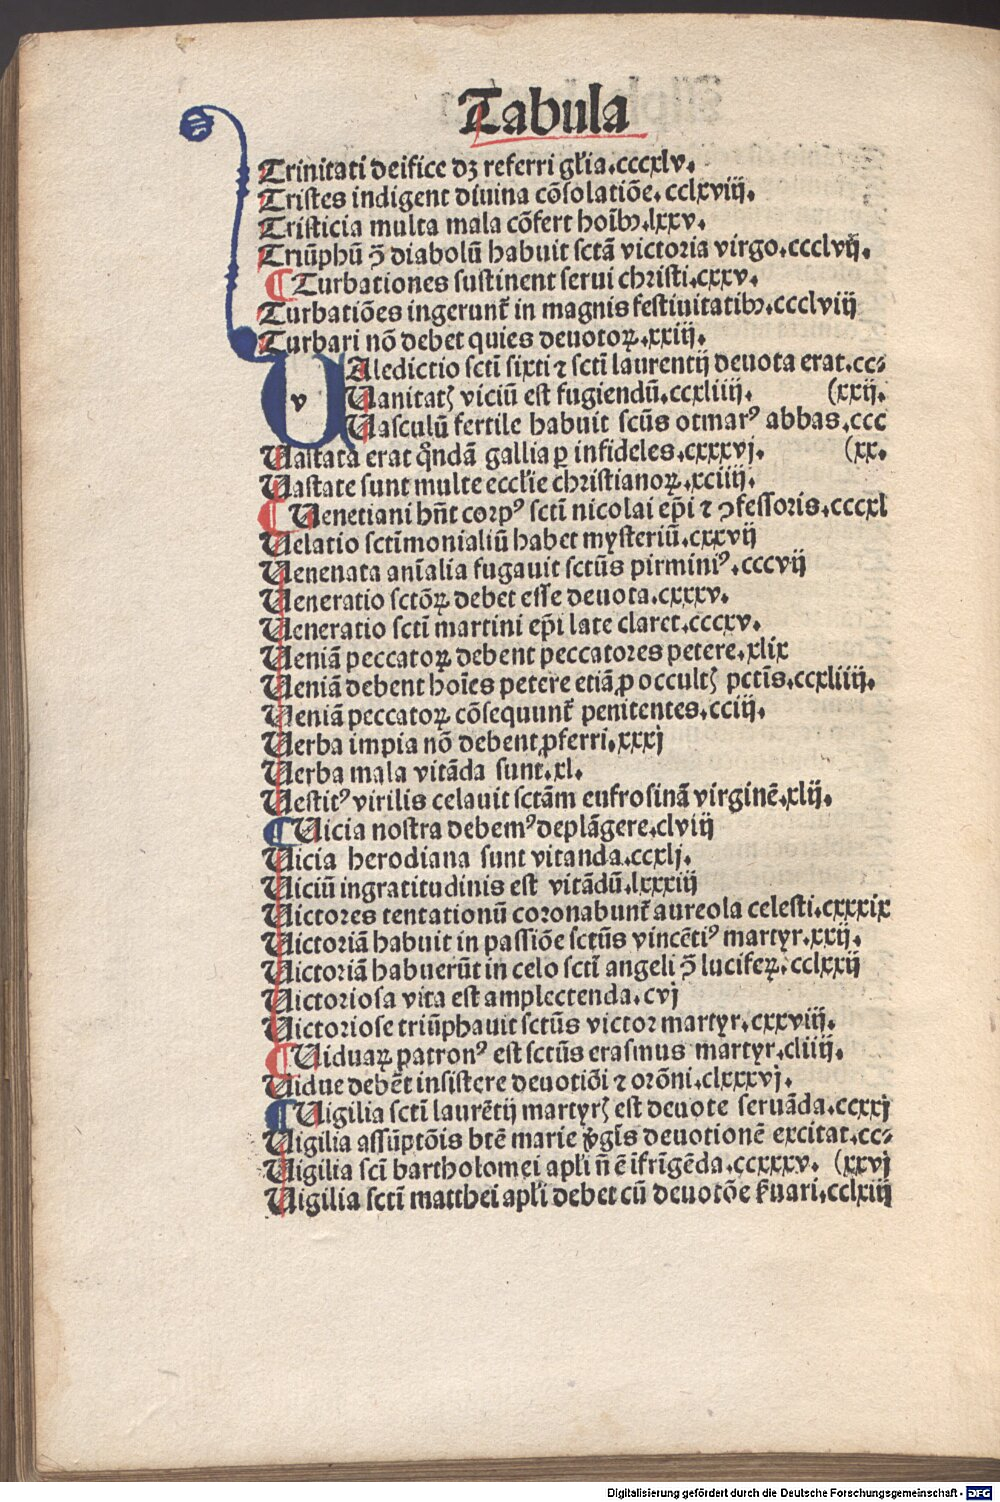 Tabula
Trinitati deifice dꝫ referri gl'ia.cccxlv.
Tristes indigent diuina cōsolatiōe.cclxviij.
Tristicia multa mala cōfert hoīb⁹.lxxv.
Triūphū ꝯ̄ diabolū habuit sctā victoria virgo.ccclvij.
¶ Turbationes sustinent serui christi.cxxv.
Turbatiōes ingerunt᷑ in magnis festiuitatib⁹.ccclviij
Turbari nō debet quies deuotoꝝ.xxiij.
VAledictio scti sixti ⁊ scti laurentij deuota erat.cc-
v Uanitatꝭ viciū est fugiendū.ccxliiij. (xxij.
Uasculū fertile habuit scūs otmar⁹ abbas.ccc
Uastata erat q̄ndā gallia ꝑ infideles.cxxxvj. (xx.
Uastate sunt multe eccl'ie christianoꝝ.xciiij.
¶ Uenetiani hn̄t corp⁹ sctī nicolai ep̄i ⁊ ꝯfessoris.cccxl
Uelatio sctīmonialiū habet mysteriū.cxxvij
Uenenata anīalia fugauit sctūs pirmini⁹.cccvij
Ueneratio sctōꝝ debet esse deuota.cxxxv.
Ueneratio sctī martini ep̄i late claret.cccxv.
Ueniā peccatoꝝ debent peccatores petere.xlix
Ueniā debent hoīes petere etiā ꝓ occultꝭ pctīs.ccxliiij.
Ueniā peccatoꝝ cōsequunt᷑ penitentes.cciij.
Uerba impia nō debent ꝓferri.xxxj
Uerba mala vitāda sunt.xl.
Uestit⁹ virilis celauit sctām eufrosinā virginē.xlij.
¶ Uicia nostra debem⁹ deplāgere.clviij
Uicia herodiana sunt vitanda.ccxlj.
Uiciū ingratitudinis est vitādū.lxxxiij
Uictores tentationū coronabunt᷑ aureola celesti.cxxxix
Uictoriā habuit in passiōe sctūs vincēti⁹ martyr.xxij.
Uictoriā habuerūt in celo sctī angeli ꝯ̄ luciferꝝ.cclxxij
Uictoriosa vita est amplectenda.cvj
Uictoriose triūphauit sctūs victor martyr.cxxviij.
¶ Uiduaꝝ patron⁹ est sctūs erasmus martyr.cliiij.
Uidue debēt insistere deuotiōi ⁊ orōni.clxxxvj.
¶ Uigilia sctī laurētij martyrꝭ est deuote seruāda.ccxxj
Uigilia assūptōis btē marie v̓gīs deuotionē excitat.cc-
Uigilia scī bartholomei apl'i n̄ ē īfrīgēda.ccxxxv. (xxvj
Uigilia sctī matthei apl'i debet cū deuotōe ẜuari.cclxiij
Digitalisierung gefördert durch die Deutsche Forschungsgemeinschaft - DFG